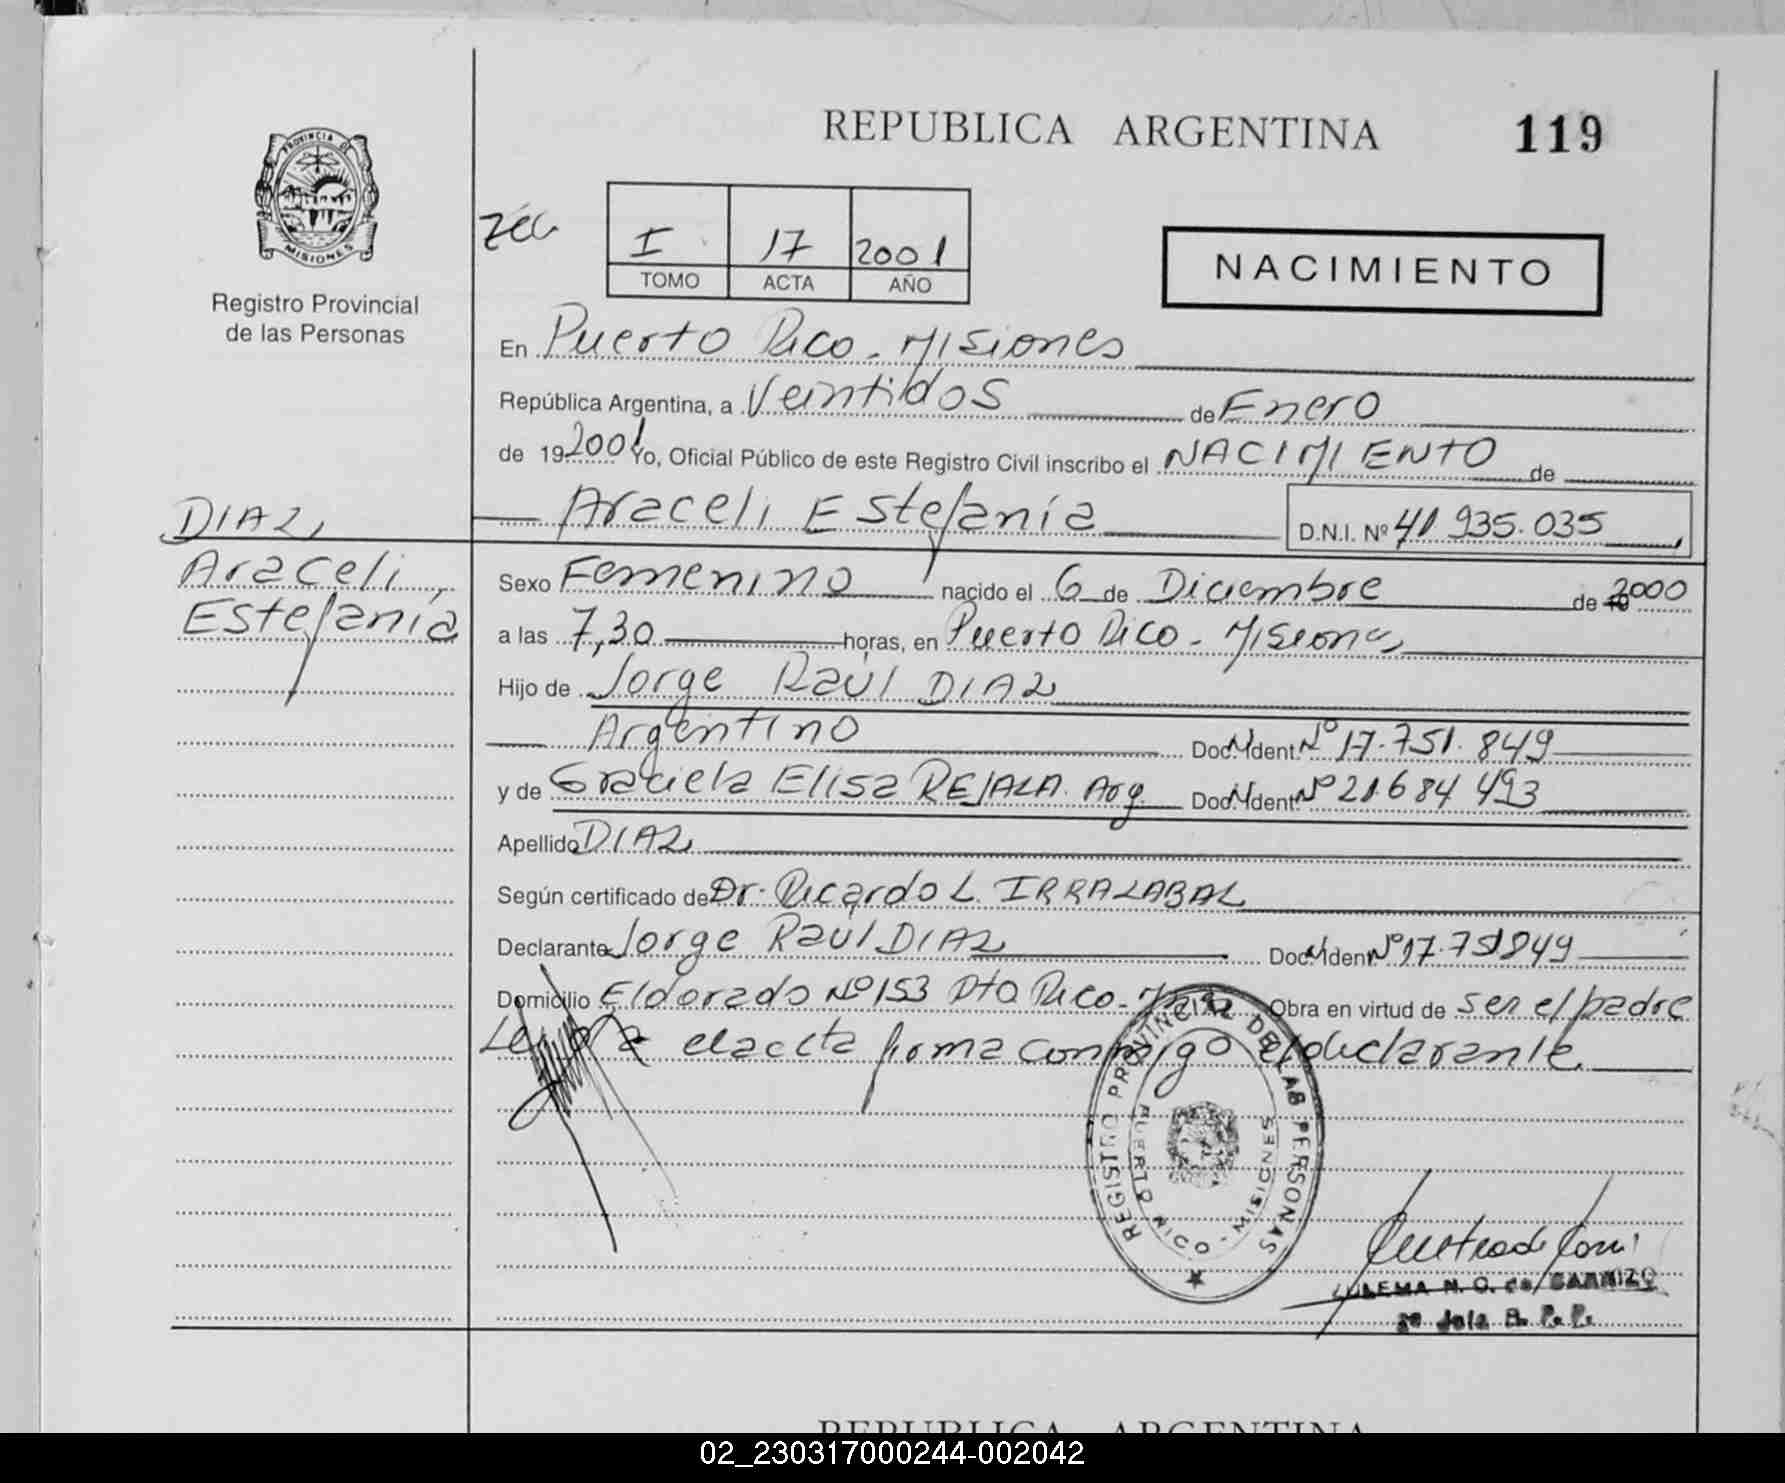 REPUBLICA ARGENTINA 119
PROVINCIA DE
MISIONES
Registro Provincial
de las Personas
I 17 2001
TOMO ACTA AÑO
NACIMIENTO
En Puerto Rico - Misiones
República Argentina, a Veintidos de Enero
de 19 2001 Yo, Oficial Público de este Registro Civil inscribo el NACIMIENTO de
Araceli Estefanía D.N.I. Nº 41.935.035
DIAZ,
Araceli
Estefanía
Sexo Femenino nacido el 6 de Diciembre de 19 2000
a las 7,30 horas, en Puerto Rico - Misiones
Hijo de Jorge Raúl DIAZ
Argentino Doc. Ident. Nº 17.751.849
y de Graciela Elisa REJALA. Arg. Doc. Ident. Nº 21.684.493
Apellido DIAZ
Según certificado de Dr. Ricardo L. IRRALABAL
Declarante Jorge Raúl DIAZ Doc. Ident. Nº 17.751849
Domicilio Eldorado Nº 153 Pto Rico - Obra en virtud de ser el padre
Leída el acta firma conmigo el declarante
REGISTRO PROVINCIAL DE LAS PERSONAS
PUERTO RICO - MISIONES
REPUBLICA ARGENTINA
02_230317000244-002042